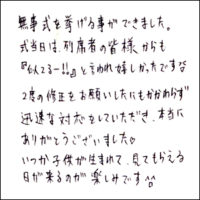 無事式を挙げる事ができました。
式当日は、列席者の皆様からも
『似てるー!!』と言われ嬉しかったです^^
2度の修正をお願いしたにもかかわらず
迅速な対応をしていただき、本当に
ありがとうございました♪
いつか子供が生まれて、見てもらえる
日が来るのが楽しみです^^